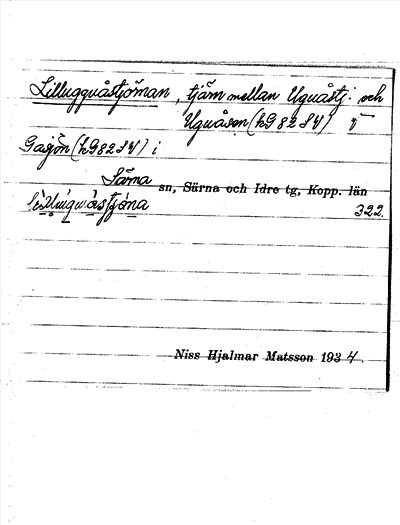 Lilluggåstjöman, tjärn mellan Uguåstj. och
Uguåsen (kG 82 SV) i
Gasjön (kG 82 SV) i
Särna sn, Särna och Idre tg, Kopp. län
322
Niss Hjalmar Matsson 1934.